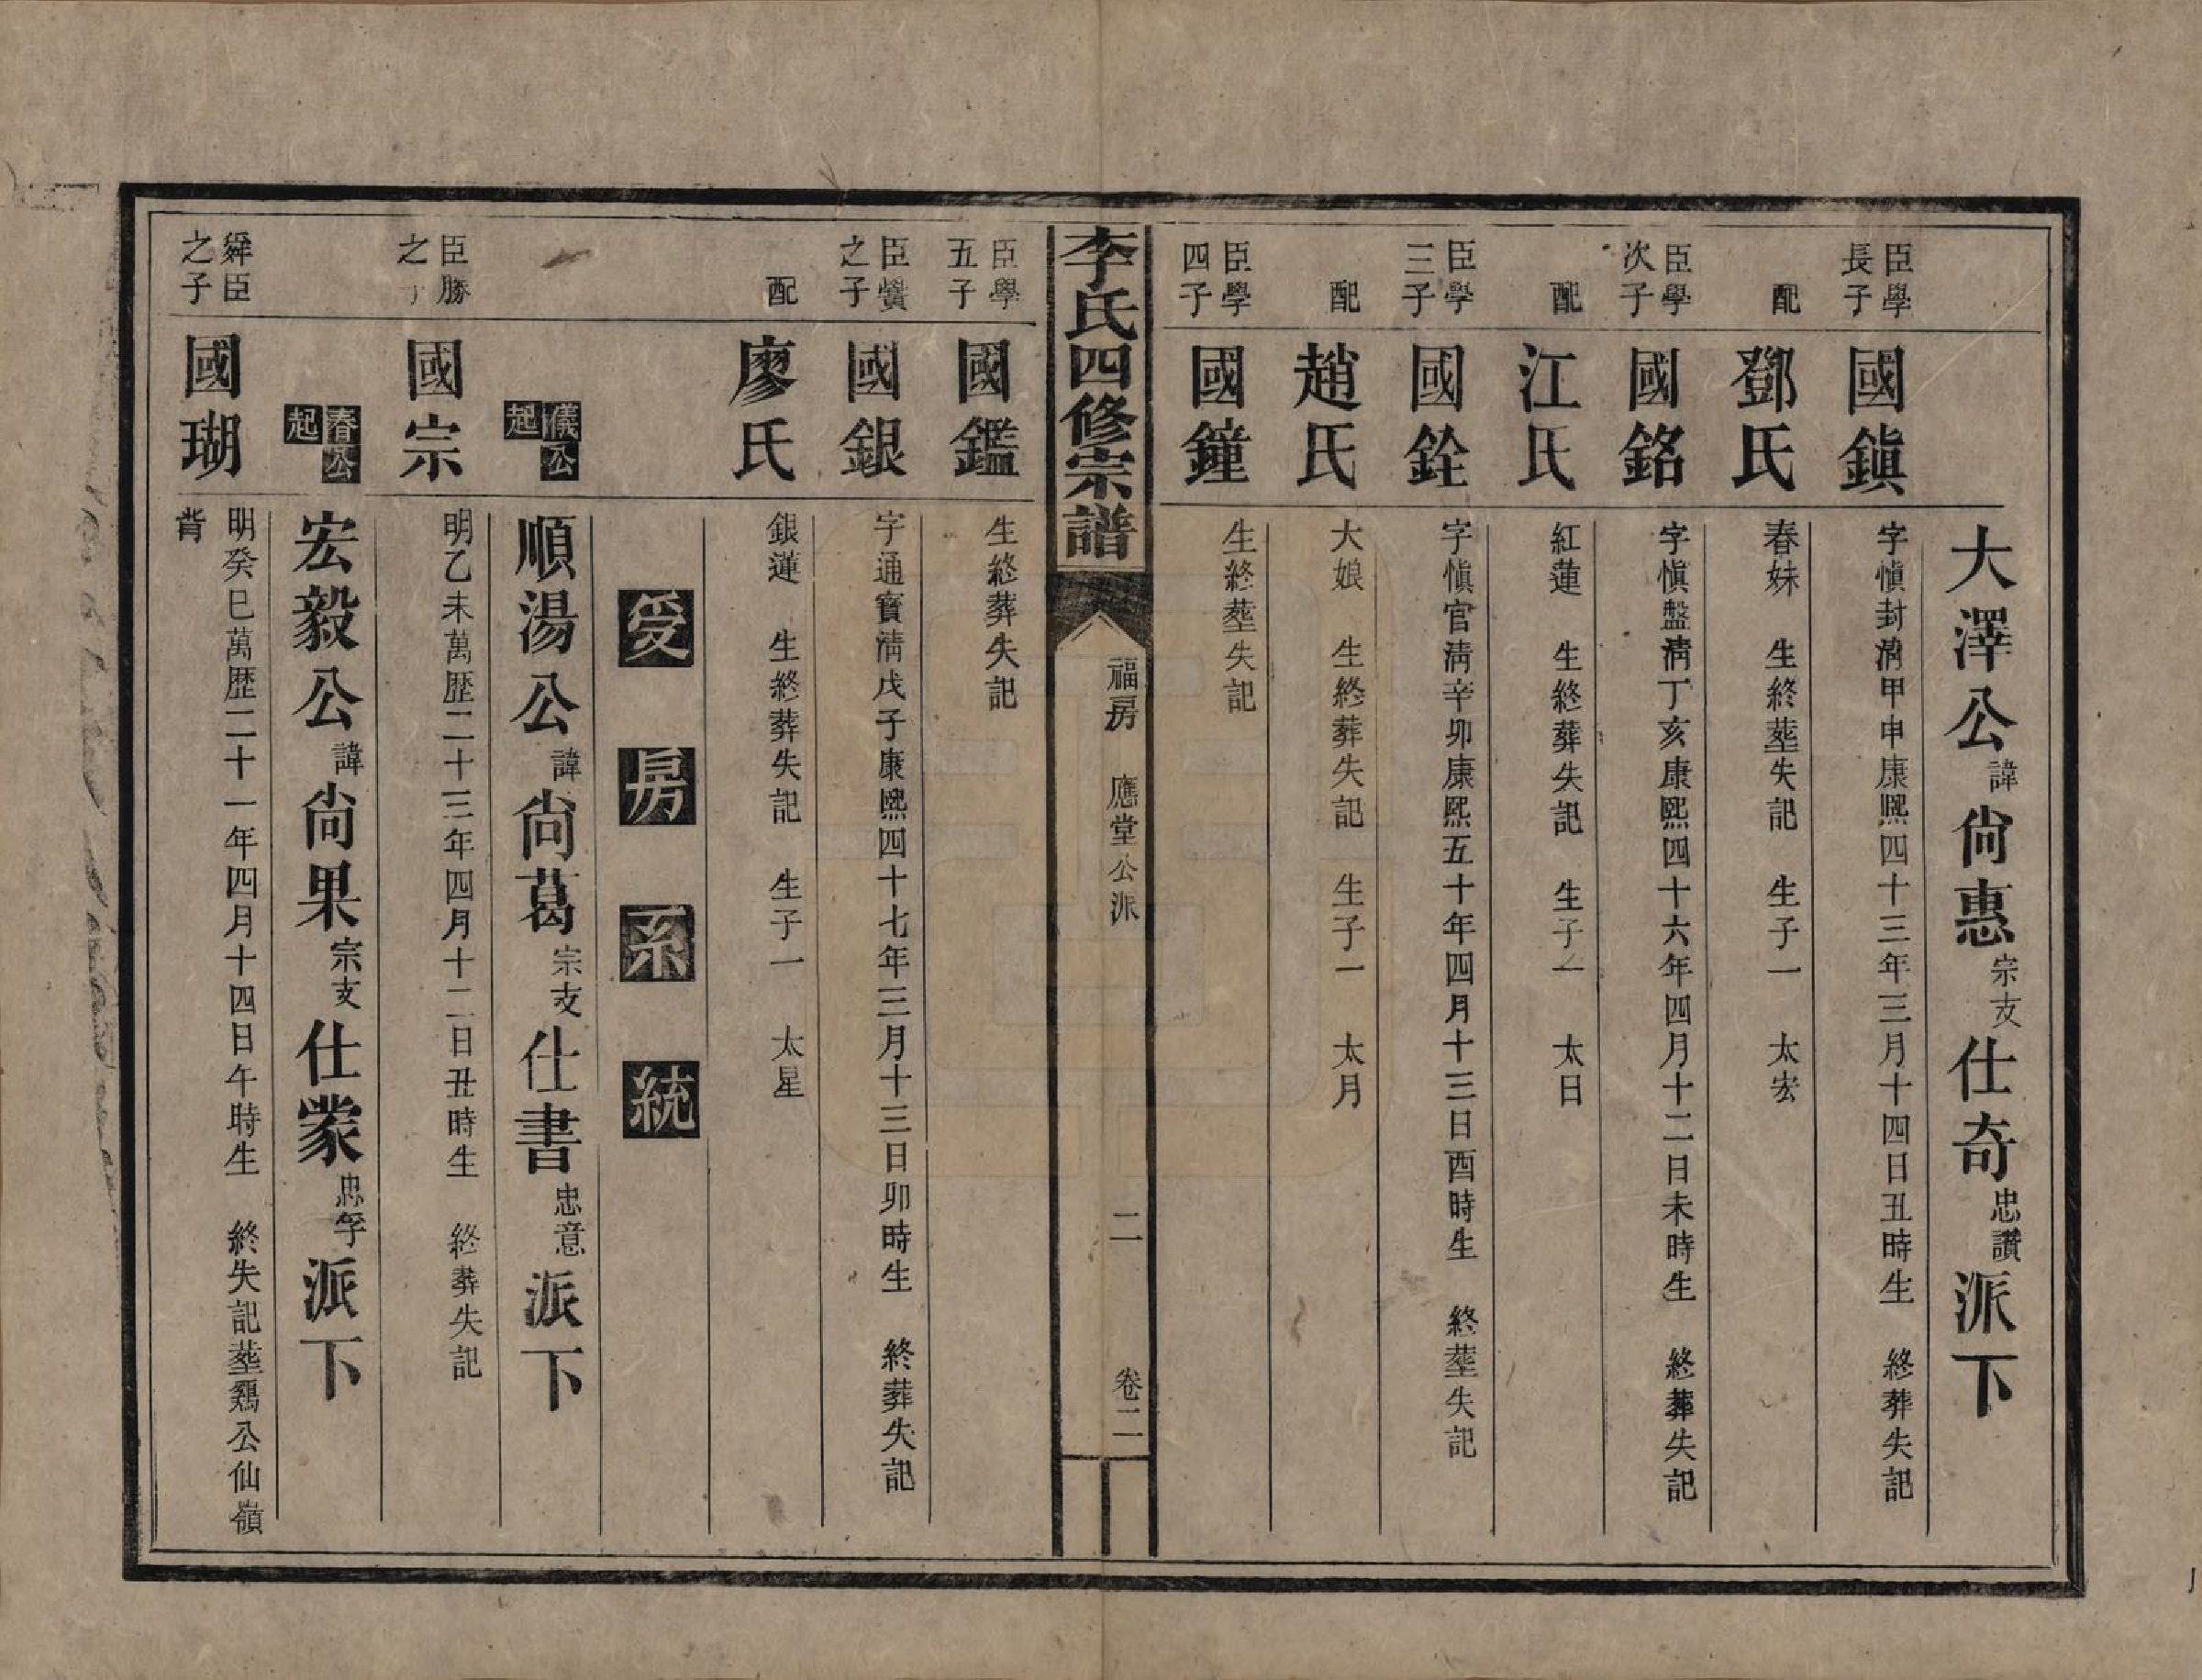 大澤公諱尙惠宗支仕奇忠讚派下
臣學長子
國鎭
字愼封淸甲申康熙四十三年三月十四日丑時生　終葬失記
配
鄧氏
春妹　生終塟失記　生子一　太宏
臣學次子
國銘
字愼盤淸丁亥康熙四十六年四月十二日未時生　終葬失記
配
江氏
紅蓮　生終葬失記　生子一　太日
臣學三子
國銓
字愼官淸辛卯康熙五十年四月十三日酉時生　終塟失記
配
趙氏
大娘　生終葬失記　生子一　太月
臣學四子
國鐘
生終塟失記
李氏四修宗譜
福房　應堂公派
二
卷二
臣學五子
國鑑
生終葬失記
臣黌之子
國銀
字通寳淸戊子康熙四十七年三月十三日卯時生　終葬失記
配
廖氏
銀蓮　生終葬失記　生子一　太星
受房系統
儀公起
順湯公諱尙葛宗支仕書忠意派下
臣勝之子
國宗
明乙未萬歷二十三年四月十二日丑時生　終葬失記
春公起
宏毅公諱尙果宗支仕䝉忠孚派下
舜臣之子
國瑚
明癸巳萬歷二十一年四月十四日午時生　終失記塟鷄公仙嶺
背